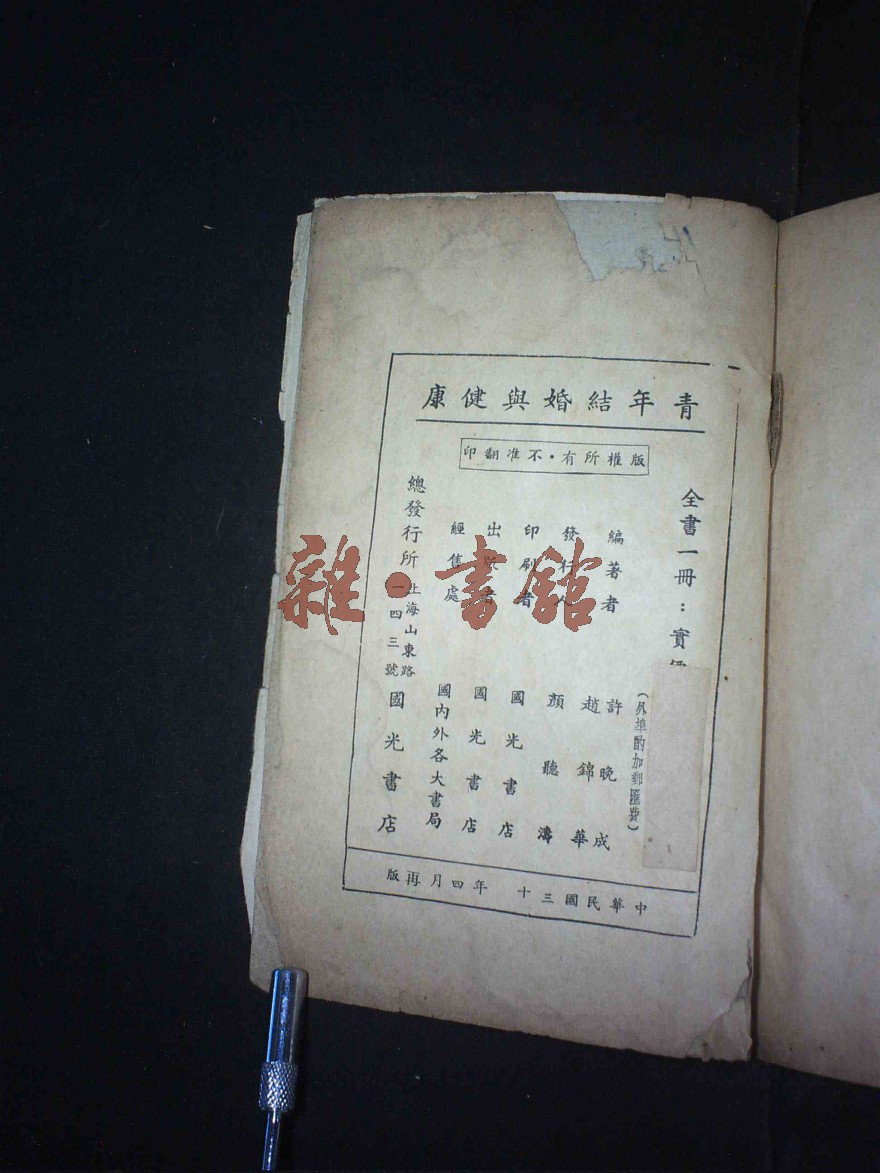 青年結婚與健康
版權所有·不准翻印
全書一冊：實
（外埠酌加郵匯費）
編著者 許晚成
趙錦華
發行人 顏聽濤
印刷者 國光書店
出版者 國光書店
經售處 國內外各大書局
總發行所 上海山東路一四三號 國光書店
中華民國三十 年四月再版
雜·書館